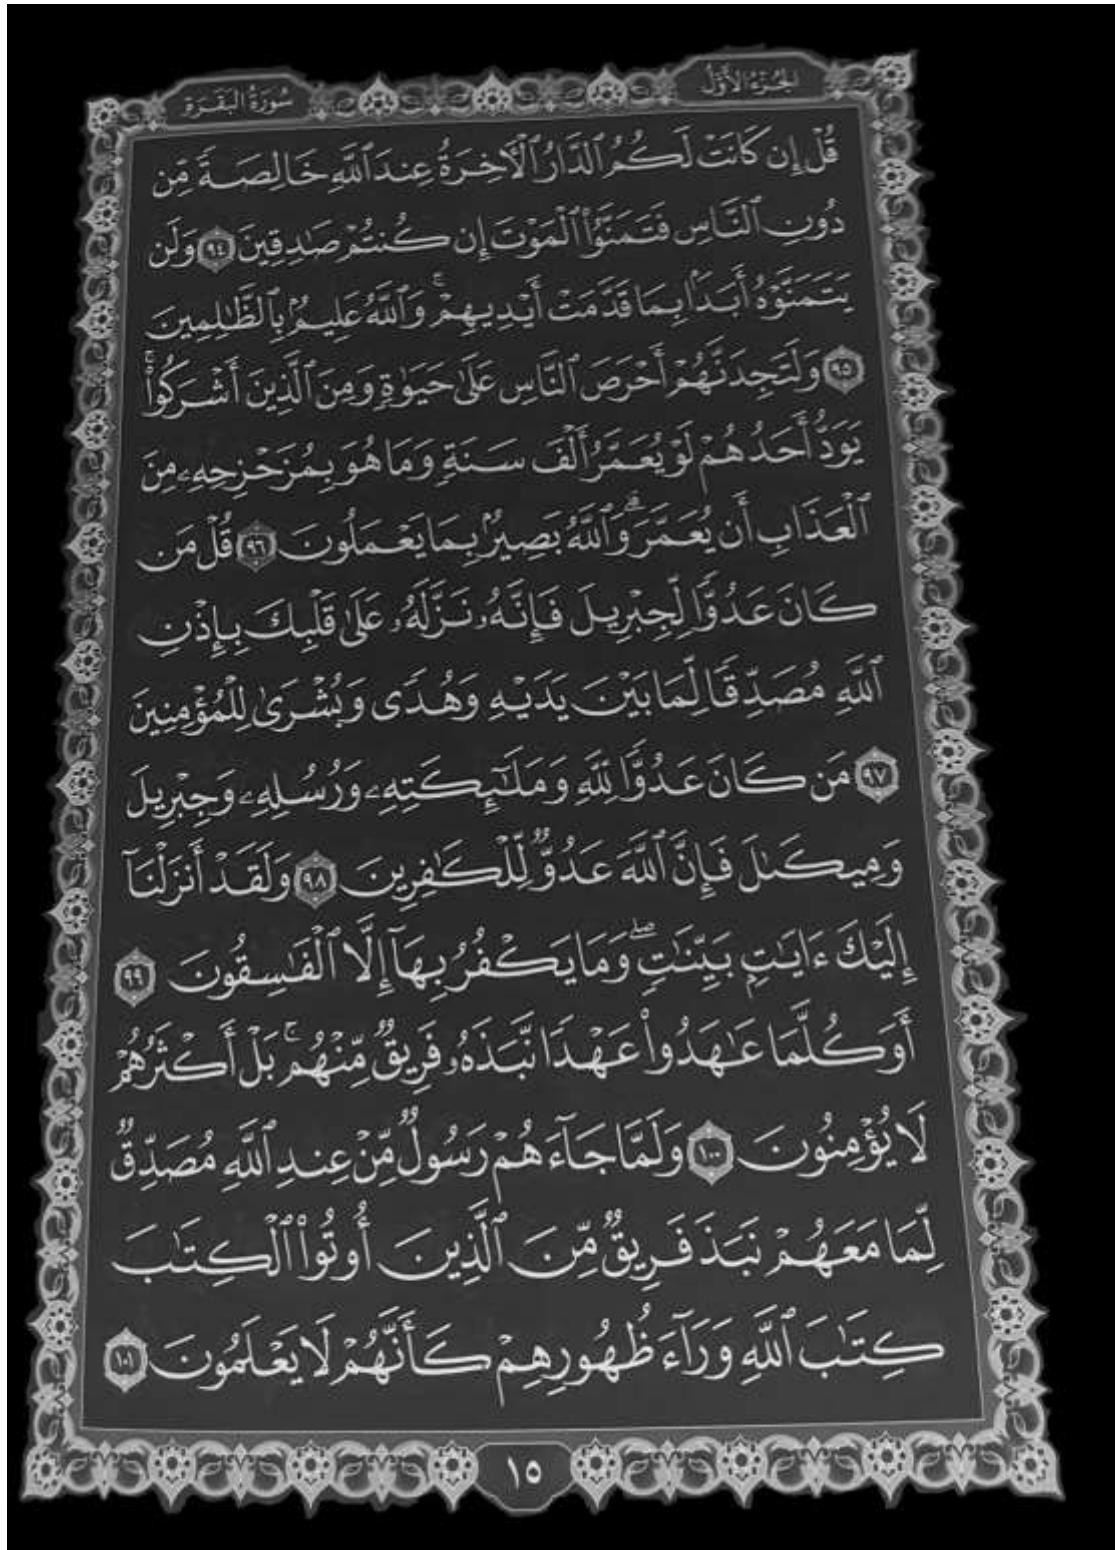 الجزء الأول
سورة البقرة
قُلْ إِن كَانَتْ لَكُمُ ٱلدَّارُ ٱلْأَخِرَةُ عِندَ ٱللَّهِ خَالِصَةً مِّن
دُونِ ٱلنَّاسِ فَتَمَنَّوُا۟ ٱلْمَوْتَ إِن كُنتُمْ صَٰدِقِينَ ٩٤ وَلَن
يَتَمَنَّوْهُ أَبَدًۢا بِمَا قَدَّمَتْ أَيْدِيهِمْ ۚ وَٱللَّهُ عَلِيمٌۢ بِٱلظَّٰلِمِينَ
٩٥ وَلَتَجِدَنَّهُمْ أَحْرَصَ ٱلنَّاسِ عَلَىٰ حَيَوٰةٍ وَمِنَ ٱلَّذِينَ أَشْرَكُوا۟ ۚ
يَوَدُّ أَحَدُهُمْ لَوْ يُعَمَّرُ أَلْفَ سَنَةٍ وَمَا هُوَ بِمُزَحْزِحِهِۦ مِنَ
ٱلْعَذَابِ أَن يُعَمَّرَ ۗ وَٱللَّهُ بَصِيرٌۢ بِمَا يَعْمَلُونَ ٩٦ قُلْ مَن
كَانَ عَدُوًّا لِّجِبْرِيلَ فَإِنَّهُۥ نَزَّلَهُۥ عَلَىٰ قَلْبِكَ بِإِذْنِ
ٱللَّهِ مُصَدِّقًا لِّمَا بَيْنَ يَدَيْهِ وَهُدًى وَبُشْرَىٰ لِلْمُؤْمِنِينَ
٩٧ مَن كَانَ عَدُوًّا لِّلَّهِ وَمَلَٰٓئِكَتِهِۦ وَرُسُلِهِۦ وَجِبْرِيلَ
وَمِيكَىٰلَ فَإِنَّ ٱللَّهَ عَدُوٌّ لِّلْكَٰفِرِينَ ٩٨ وَلَقَدْ أَنزَلْنَآ
إِلَيْكَ ءَايَٰتٍۭ بَيِّنَٰتٍ ۖ وَمَا يَكْفُرُ بِهَآ إِلَّا ٱلْفَٰسِقُونَ ٩٩
أَوَكُلَّمَا عَٰهَدُوا۟ عَهْدًا نَّبَذَهُۥ فَرِيقٌ مِّنْهُم ۚ بَلْ أَكْثَرُهُمْ
لَا يُؤْمِنُونَ ١٠٠ وَلَمَّا جَآءَهُمْ رَسُولٌ مِّنْ عِندِ ٱللَّهِ مُصَدِّقٌ
لِّمَا مَعَهُمْ نَبَذَ فَرِيقٌ مِّنَ ٱلَّذِينَ أُوتُوا۟ ٱلْكِتَٰبَ
كِتَٰبَ ٱللَّهِ وَرَآءَ ظُهُورِهِمْ كَأَنَّهُمْ لَا يَعْلَمُونَ ١٠١
١٥